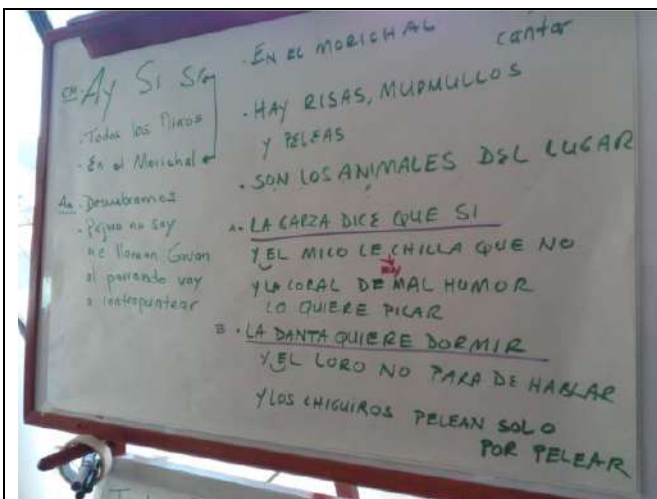 Ay Si Si
. Todos los Niños
. En el Morichal
. Descubramos
. no soy
me llaman Gavan
al parrando voy
a contrapuntear
. EN EL MORICHAL
cantar
. HAY RISAS, MURMULLOS
Y PELEAS
. SON LOS ANIMALES DEL LUGAR
A . LA GARZA DICE QUE SI
Y EL MICO LE CHILLA QUE NO
muy
Y LA CORAL DE MAL HUMOR
LO QUIERE PICAR
B . LA DANTA QUIERE DORMIR
Y EL LORO NO PARA DE HABLAR
Y LOS CHIGUIROS PELEAN SOLO
POR PELEAR